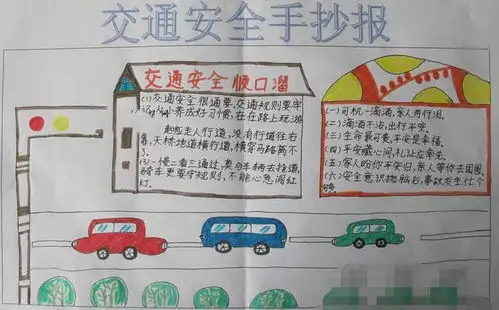 交通安全手抄报
交通安全顺口溜
(1)交通安全很重要,交通规则要牢
养成好习惯,在在路上玩游
起配走人行道,没有行道往右
靠,天桥地道横行道,横穿马路离不
了。
(3)一慢二看三通过,莫与车辆去抢道,
骑车更要守规则,不能心急闯红
灯。
(一)司机一滴酒,家人两行泪。
(二)滴酒不沾,出行平安。
(三)生命最可贵,平安是幸福。
(四)平安藏心间,礼让位牵先
(五)家人盼你平安归,亲人等你去团圆。
(六)安全意识抛脑右,事故发生